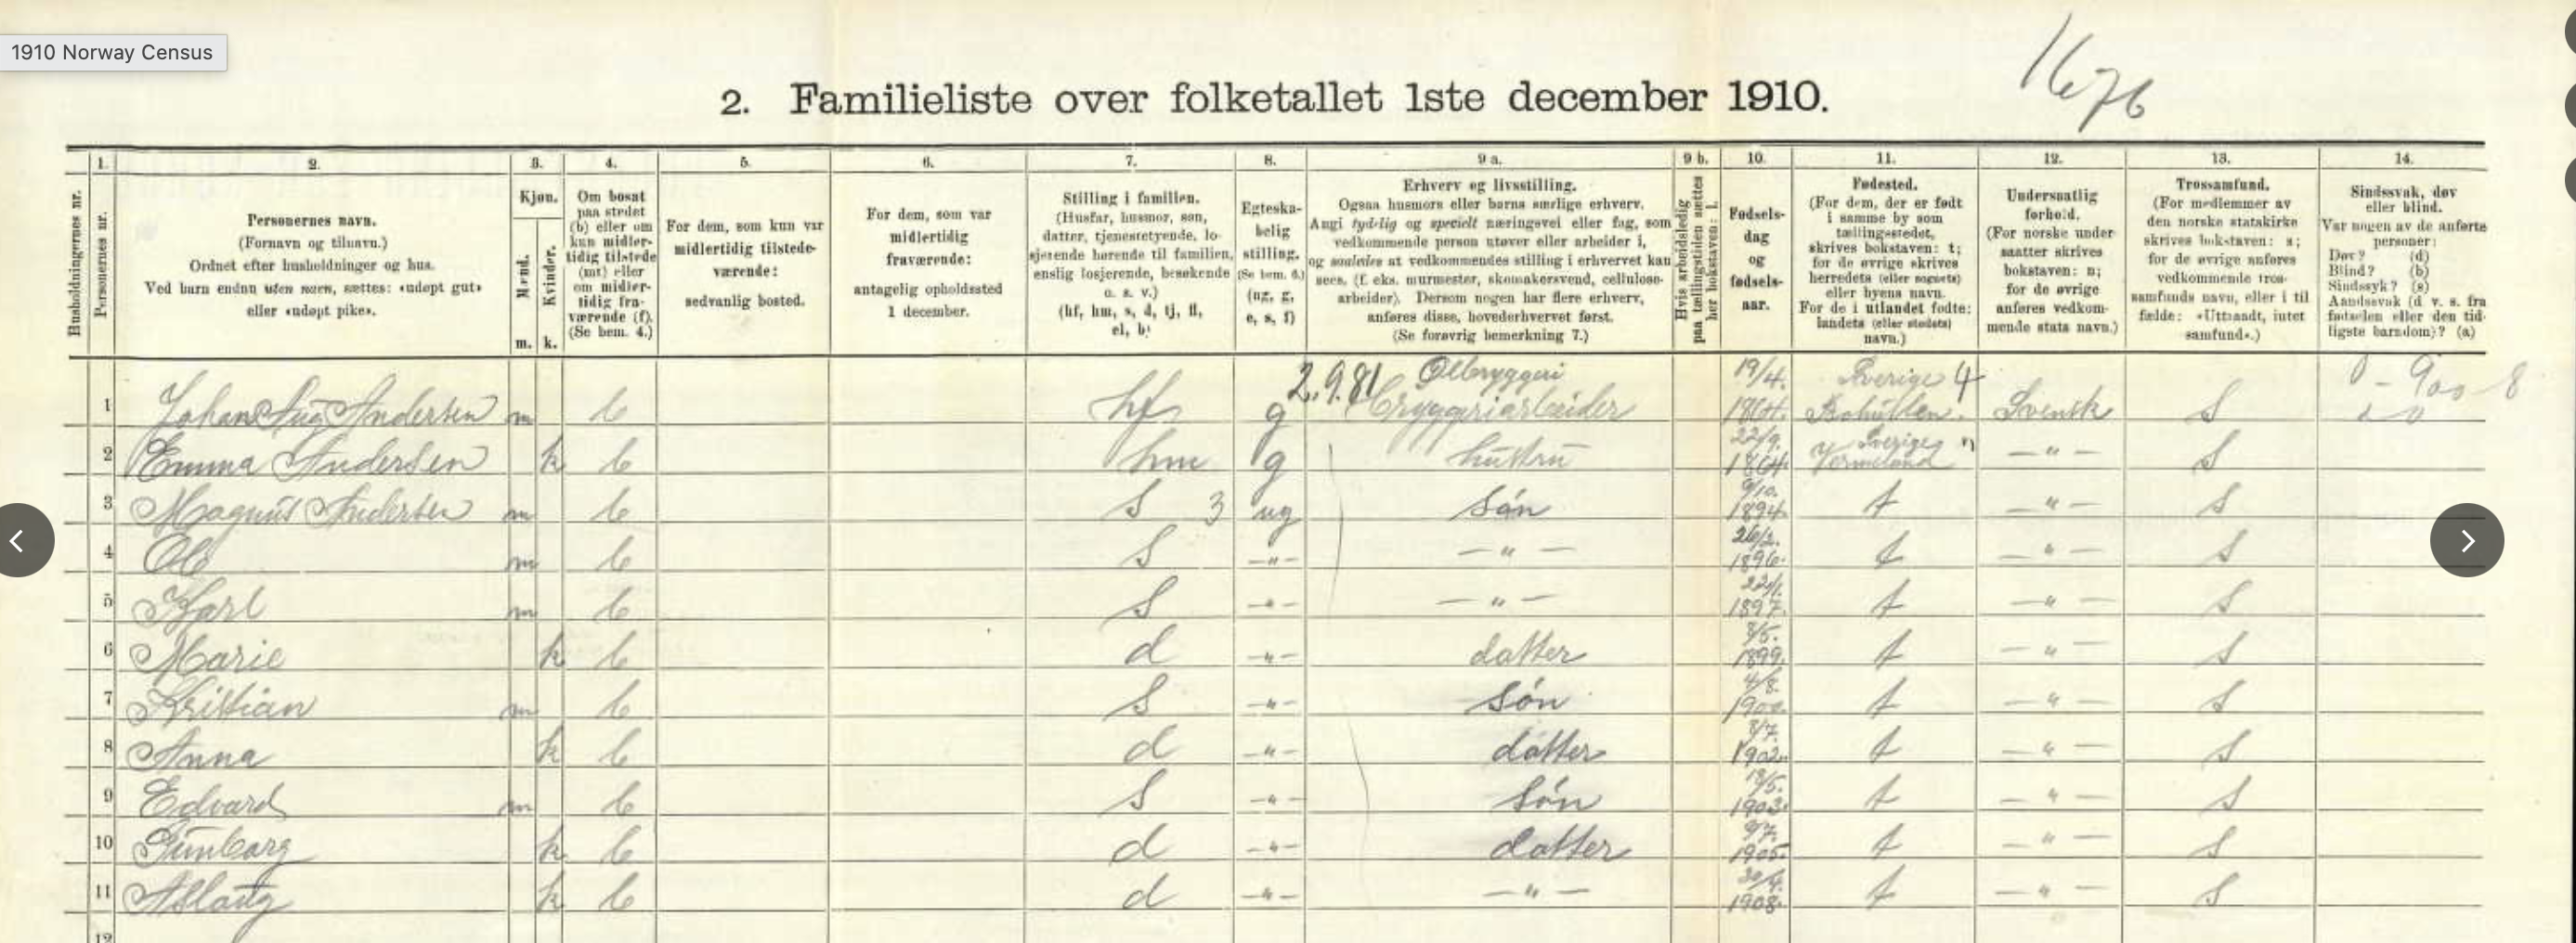 1910 Norway Census
1676
2. Familieliste over folketallet 1ste december 1910.
Husholdningernes nr.
1.
Personernes nr.
2.
Personernes navn.
(Fornavn og tilnavn.)
Ordnet efter husholdninger og hus.
Ved barn endnu uten navn, sættes: «udøpt gut»
eller «udøpt pike».
3.
Kjøn.
Mænd.
Kvinder.
m. k.
4.
Om bosat
paa stedet
(b) eller om
kun midler-
tidig tilstede
(mt) eller
om midler-
tidig fra-
værende (f).
(Se bem. 4.)
5.
For dem, som kun var
midlertidig tilstede-
værende:
sedvanlig bosted.
6.
For dem, som var
midlertidig
fraværende:
antagelig opholdssted
1 december.
7.
Stilling i familien.
(Husfar, husmor, søn,
datter, tjenestetyende, lo-
sjerende hørende til familien,
enslig losjerende, besøkende
o. s. v.)
(hf, hm, s, d, tj, fl,
el, b)
8.
Egteska-
belig
stilling.
(Se bem. 6.)
(ug, g,
e, s, f)
9 a.
Erhverv og livsstilling.
Ogsaa husmors eller barns særlige erhverv.
Angi tydelig og specielt næringsvei eller fag, som
vedkommende person utøver eller arbeider i,
og saaledes at vedkommendes stilling i erhvervet kan
sees, (f. eks. murmester, skomakersvend, cellulose-
arbeider). Dersom nogen har flere erhverv,
anføres disse, hovederhvervet først.
(Se forøvrig bemerkning 7.)
9 b.
Hvis arbeidsledig
paa tællingstiden sættes
her bokstaven: l.
10.
Fødsels-
dag
og
fødsels-
aar.
11.
Fødested.
(For dem, der er født
i samme by som
tællingsstedet,
skrives bokstaven: t;
for de øvrige skrives
herredets (eller sognets)
eller byens navn.
For de i utlandet fødte:
landets (eller stedets)
navn.)
12.
Undersaatlig
forhold.
(For norske under-
saatter skrives
bokstaven: n;
for de øvrige
anføres vedkom-
mende stats navn.)
13.
Trossamfund.
(For medlemmer av
den norske statskirke
skrives bokstaven: s;
for de øvrige anføres
vedkommende tros-
samfunds navn, eller i til-
fælde: «Uttraadt, intet
samfund».)
14.
Sindssvak, døv
eller blind.
Var nogen av de anførte
personer:
Døv? (d)
Blind? (b)
Sindssyk? (s)
Aandssvak (d. v. s. fra
fødselen eller den tid-
ligste barndom)? (a)
2.9.81 Ølbryggeri 19/4. Sverige 4
1 Johan Aug Andersen m b hf g bryggeriarbeider 1864. Bohuslen. Svensk S
22/9. Sverige "
2 Emma Andersen k b hm g hustru 1864. Vermeland — " — S
9/10.
3 Magnus Andersen m b S 3 ug Søn 1894. t — " — S
26/2.
4 Ole m b S — " — — " — 1896. t — " — S
22/1.
5 Karl m b S — " — — " — 1897. t — " — S
8/5.
6 Marie k b d — " — datter 1899. t — " — S
4/8.
7 Kristian m b S — " — Søn 1900. t — " — S
8/7.
8 Anna k b d — " — datter 1902. t — " — S
19/5.
9 Edvard m b S — " — Søn 1903. t — " — S
9/7.
10 Gunborg k b d — " — datter 1905. t — " — S
30/4.
11 Aslaug k b d — " — — " — 1908. t — " — S
12